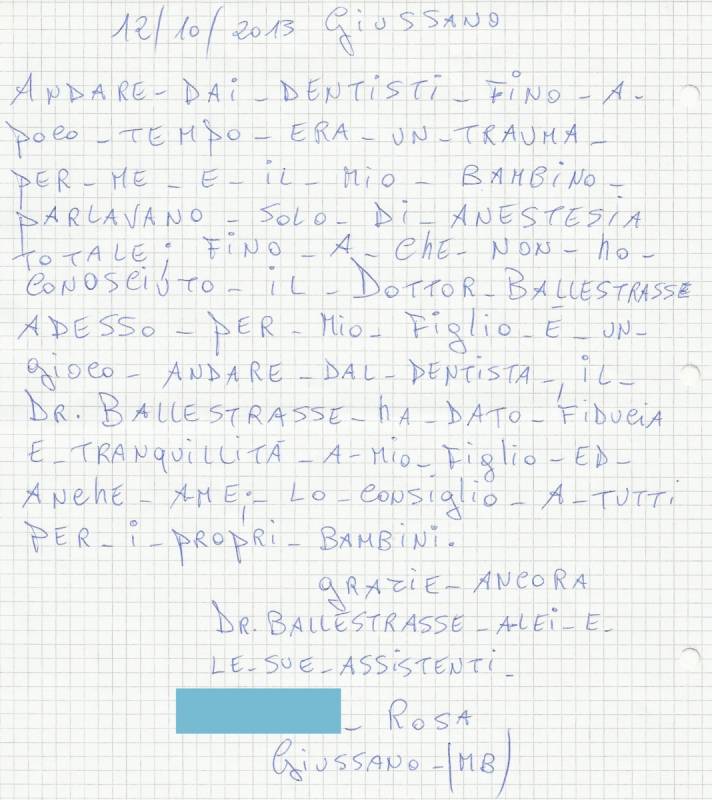 12/10/2013 GiUSSANO
ANDARE-DAi-DENTiSTi-FiNO-A-
POCO-TEMPO-ERA-UN-TRAUMA-
PER-ME-E-iL-MiO-BAMBiNO-
PARLAVANO-SOLO-Di-ANESTESiA
TOTALE; FiNO-A-ChE-NON-hO-
CONOSCiUTO-iL-DOTTOR-BALLESTRASSE
ADESSO-PER-MiO-FigliO-È-UN-
giOCO-ANDARE-DAL-DENTiSTA-, iL-
DR. BALLESTRASSE-hA-DATO-FiDUCiA
E-TRANqUiLLiTÀ-A-MiO-FigliO-ED-
ANChE-AME;-LO-CONSigliO-A-TUTTi
PER-i-PROPRi-BAMBiNi.
gRAZiE-ANCORA
DR. BALLESTRASSE-ALEi-E-
LE-SUE-ASSiSTENTi-
-ROSA
GiUSSANO-(MB)